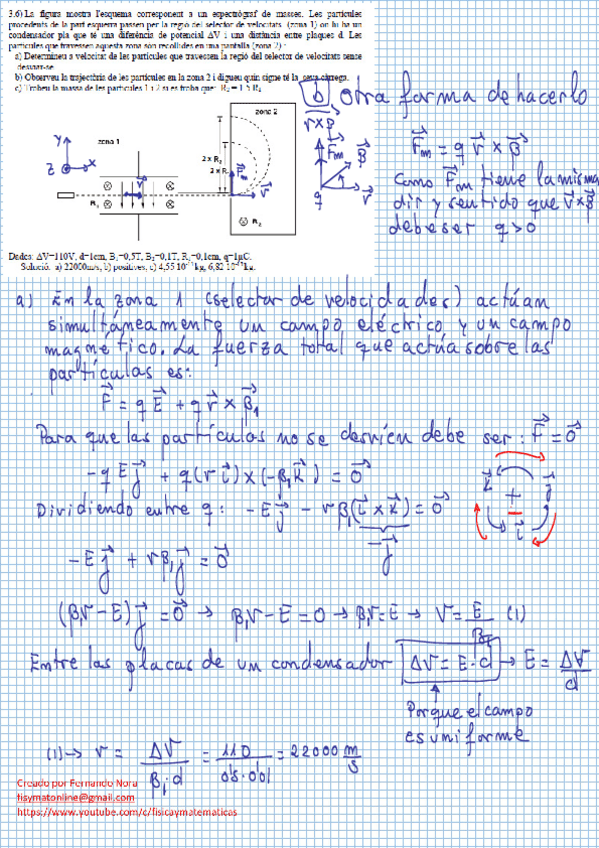 3.6) La figura mostra l'esquema corresponent a un espectrògraf de masses. Les partícules
procedents de la part esquerra passen per la regió del selector de velocitats (zona 1) on hi ha un
condensador pla que té una diferència de potencial ΔV i una distància entre plaques d. Les
partícules que travessen aquesta zona són recollides en una pantalla (zona 2):
a) Determineu a velocitat de les partícules que travessen la regió del selector de velocitats sense
desviar-se.
b) Observeu la trajectòria de les partícules en la zona 2 i digueu quin signe té la seva càrrega.
c) Trobeu la massa de les partícules 1 i 2 si es troba que: R₂ = 1.5 R₁
zona 1
zona 2
Y
Z
X
v
B₁
2 x R
2 x R
Fm
v
B₂
b) otra forma de hacerlo
v×B
Fm
B
q
v
Fm = q v × B
Como Fm tiene la misma
dir y sentido que v×B
debe ser q>0
Dades: ΔV=110V, d=1cm, B₁=0,5T, B₂=0,1T, R₁=0,1cm, q=1μC.
Solució: a) 22000m/s, b) positives, c) 4,55 10⁻¹⁵kg, 6,82 10⁻¹⁵kg.
a) En la zona 1 (selector de velocidades) actúan
simultáneamente un campo eléctrico y un campo
magnético. La fuerza total que actúa sobre las
partículas es:
F = qE + q v × B₁
Para que las partículas no se desvíen debe ser: F = 0
-qE j + q(v i)×(-B₁ k) = 0
Dividiendo entre q: -E j - v B₁(i × k) = 0
-j
k
j
i
+
-
-E j + v B₁ j = 0
(B₁v - E) j = 0 → B₁v - E = 0 → B₁v = E → v = E/B₁ (1)
Entre las placas de un condensador ΔV = E·d → E = ΔV/d
Porque el campo
es uniforme
(1) → v = ΔV/(B₁·d) = 110/(0'5·0'01) = 22000 m/s
Creado por Fernando Nora
fisymatonline@gmail.com
https://www.youtube.com/c/fisicaymatematicas